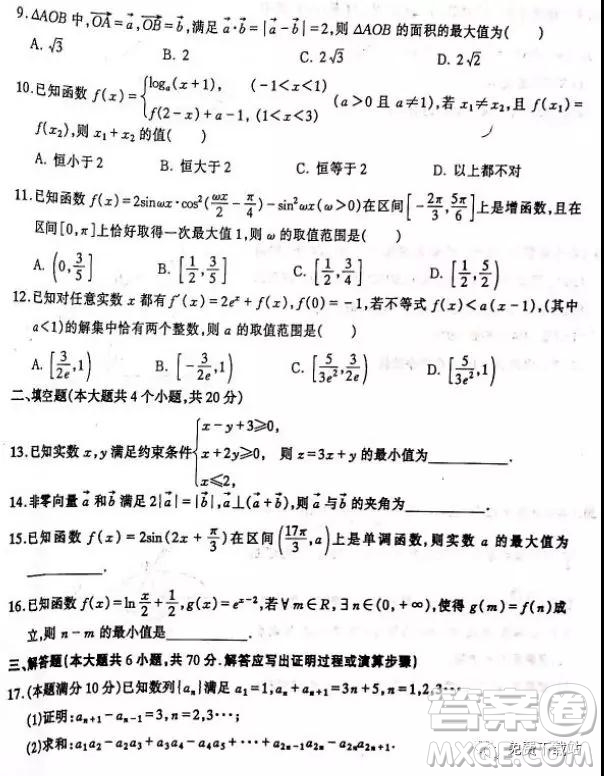 9.△AOB 中,$\overrightarrow{OA}=\vec{a}$,$\overrightarrow{OB}=\vec{b}$,满足 $\vec{a}\cdot\vec{b}=|\vec{a}-\vec{b}|=2$,则 △AOB 的面积的最大值为(　　)
A. √3　B. 2　C. 2√3　D. 2√2
10.已知函数 $f(x)=\begin{cases}\log_a(x+1), & (-1<x<1)\\ f(2-x)+a-1, & (1<x<3)\end{cases}$ (a>0 且 a≠1),若 x₁≠x₂,且 f(x₁)=
f(x₂),则 x₁+x₂ 的值(　　)
A. 恒小于 2　B. 恒大于 2　C. 恒等于 2　D. 以上都不对
11.已知函数 $f(x)=2\sin\omega x\cdot\cos^2(\frac{\omega x}{2}-\frac{\pi}{4})-\sin^2\omega x(\omega>0)$在区间$[-\frac{2\pi}{3},\frac{5\pi}{6}]$上是增函数,且在
区间[0,π]上恰好取得一次最大值 1,则 ω 的取值范围是(　　)
A. $(0,\frac{3}{5}]$　B. $[\frac{1}{2},\frac{3}{5}]$　C. $[\frac{1}{2},\frac{3}{4}]$　D. $[\frac{1}{2},\frac{5}{2})$
12.已知对任意实数 x 都有 $f'(x)=2e^x+f(x)$,f(0)=-1,若不等式 f(x)<a(x-1),(其中
a<1)的解集中恰有两个整数,则 a 的取值范围是(　　)
A. $[\frac{3}{2e},1)$　B. $[-\frac{3}{2e},1)$　C. $[\frac{5}{3e^2},\frac{3}{2e})$　D. $[\frac{5}{3e^2},1)$
二、填空题(本大题共 4 个小题,共 20 分)
13.已知实数 x,y 满足约束条件$\begin{cases}x-y+3\geqslant0,\\ x+2y\geqslant0,\\ x\leqslant2,\end{cases}$ 则 z=3x+y 的最小值为________.
14.非零向量 $\vec{a}$ 和 $\vec{b}$ 满足 $2|\vec{a}|=|\vec{b}|$,$\vec{a}\perp(\vec{a}+\vec{b})$,则 $\vec{a}$ 与 $\vec{b}$ 的夹角为________.
15.已知函数 $f(x)=2\sin(2x+\frac{\pi}{3})$在区间$(\frac{17\pi}{3},a)$上是单调函数,则实数 a 的最大值为
________.
16.已知函数 $f(x)=\ln\frac{x}{2}+\frac{1}{2}$,$g(x)=e^{x-2}$,若∀m∈R,∃n∈(0,+∞),使得 g(m)=f(n)成
立,则 n-m 的最小值是________.
三、解答题(本大题共 6 小题,共 70 分.解答应写出证明过程或演算步骤)
17.(本题满分 10 分)已知数列{aₙ}满足 a₁=1;aₙ+aₙ₊₁=3n+5,n=1,2,3⋯
(1)证明:aₙ₊₁-aₙ₋₁=3,n=2,3⋯;
(2)求和:$a_1a_2-a_2a_3+a_3a_4-a_4a_5+\cdots+a_{2n-1}a_{2n}-a_{2n}a_{2n+1}$.
答案圈
MXQE.COM
免费下载站